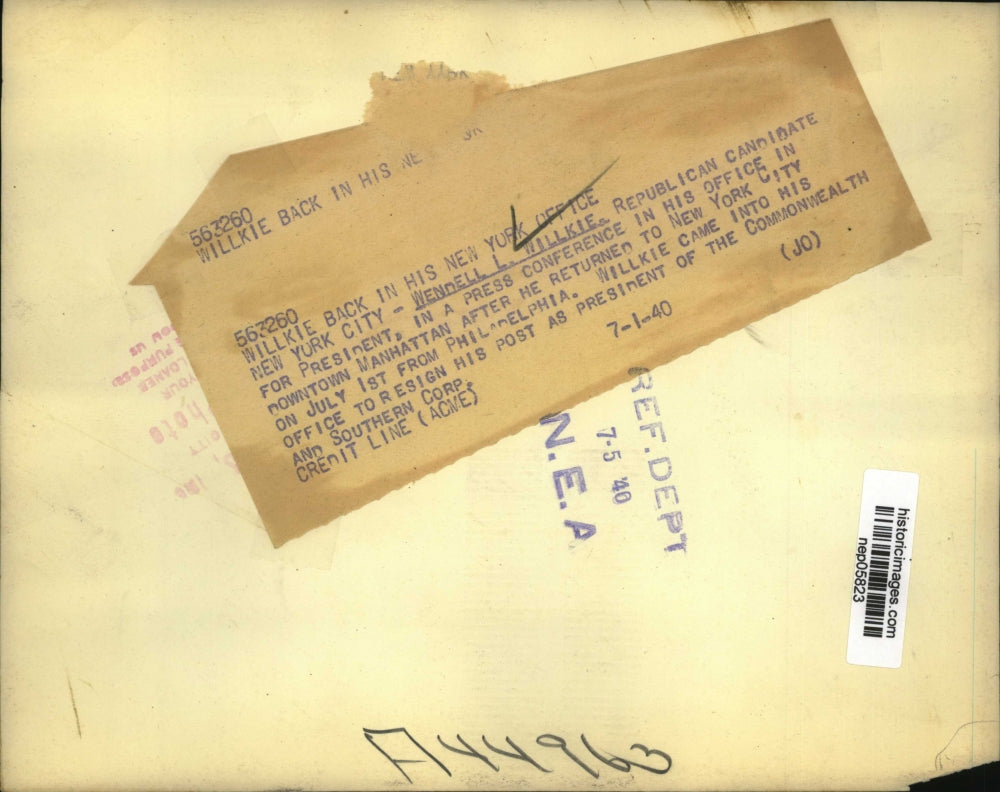 563260
WILLKIE BACK IN HIS NE
563260
WILLKIE BACK IN HIS NEW YORK OFFICE
NEW YORK CITY - WENDELL L. WILLKIE, REPUBLICAN CANDIDATE
FOR PRESIDENT, IN A PRESS CONFERENCE IN HIS OFFICE IN
DOWNTOWN MANHATTAN AFTER HE RETURNED TO NEW YORK CITY
ON JULY 1ST FROM PHILADELPHIA. WILLKIE CAME INTO HIS
OFFICE TO RESIGN HIS POST AS PRESIDENT OF THE COMMONWEALTH
AND SOUTHERN CORP.
CREDIT LINE (ACME) 7-1-40 (JO)
REF. DEPT
7-5 '40
N.E.A
historicimages.com
nep05823
A44963